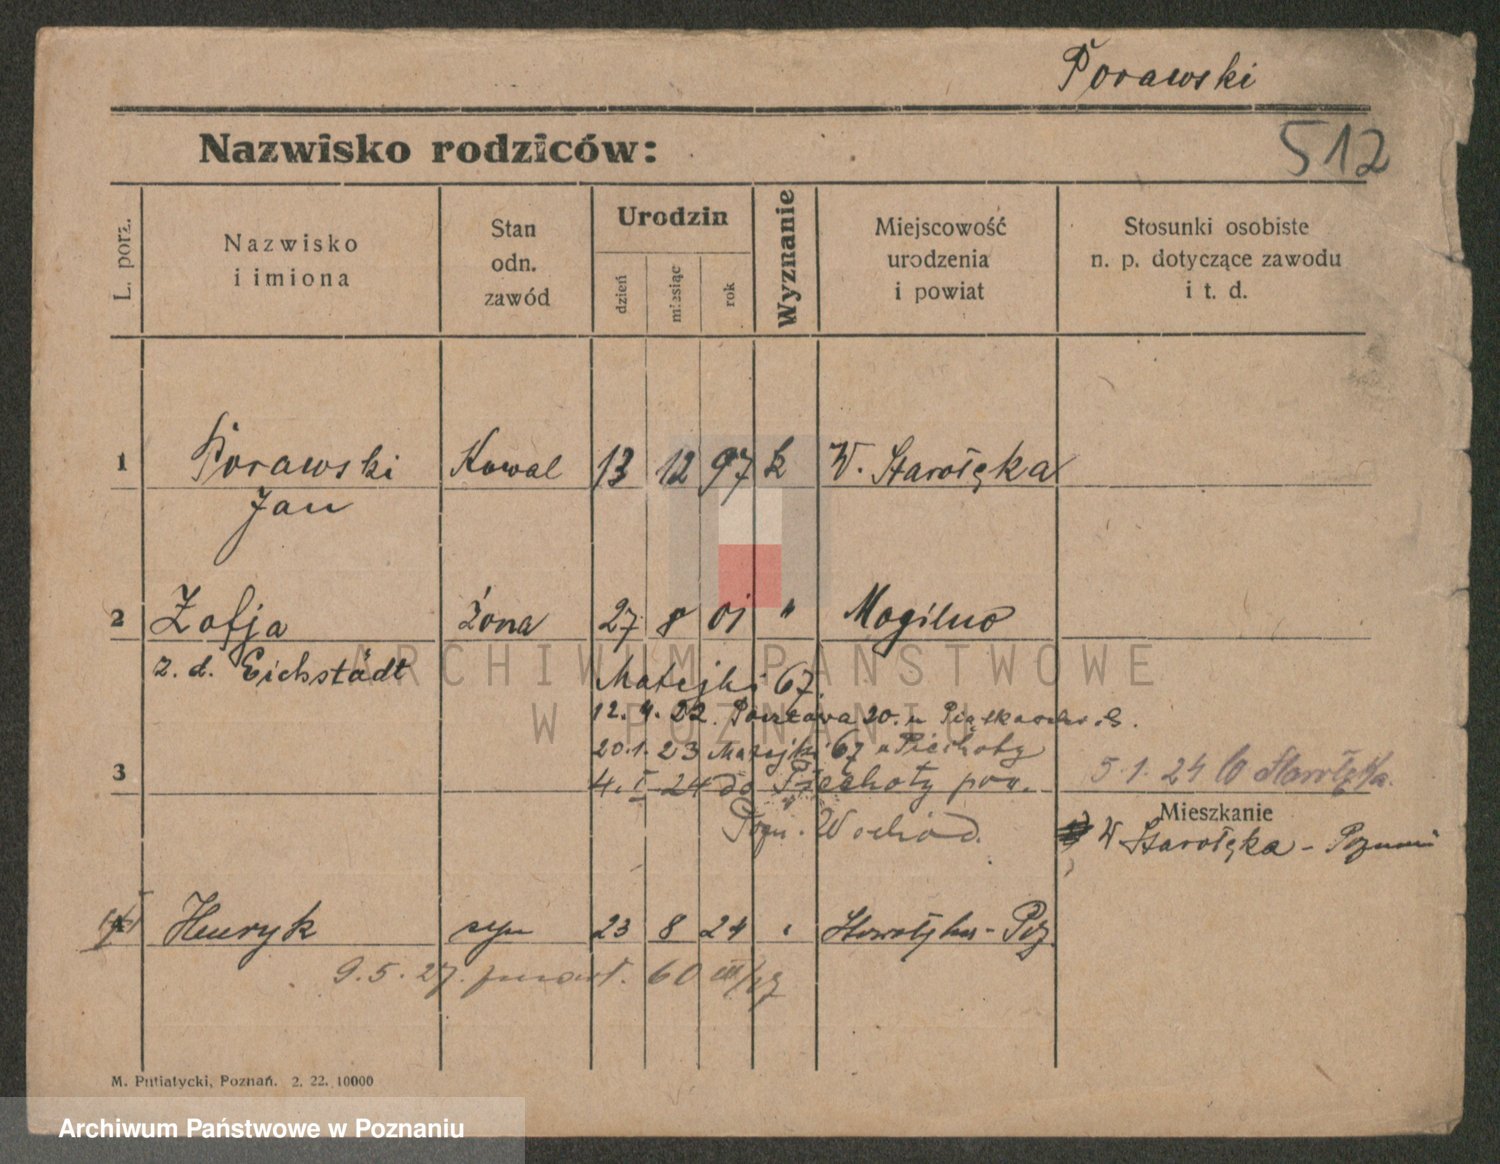 Porawski
512
Nazwisko rodziców:
L. porz.
Nazwisko i imiona
Stan odn. zawód
Urodzin
dzień
miesiąc
rok
Wyznanie
Miejscowość urodzenia i powiat
Stosunki osobiste n. p. dotyczące zawodu i t. d.
1 Porawski Kowal 13 12 97 k W. Starołęka
Jan
2 Zofja żona 27 8 01 " Mogilno
z. d. Eichstädt
Matejki 67
12. 4. 22.
20.1. 23 Matejki 67 u Piechoty
3 4. I 24 do Piechoty pow. 5.1.24 W Starołęka.
Mieszkanie
W Starołęka - Poznań
Henryk syn 23 8 24 Starołęka - Poz
9. 5. 27. zmarł. 60 III/27
M. Putiatycki, Poznań. 2. 22. 10000
ARCHIWUM PAŃSTWOWE
W POZNANIU
Archiwum Państwowe w Poznaniu